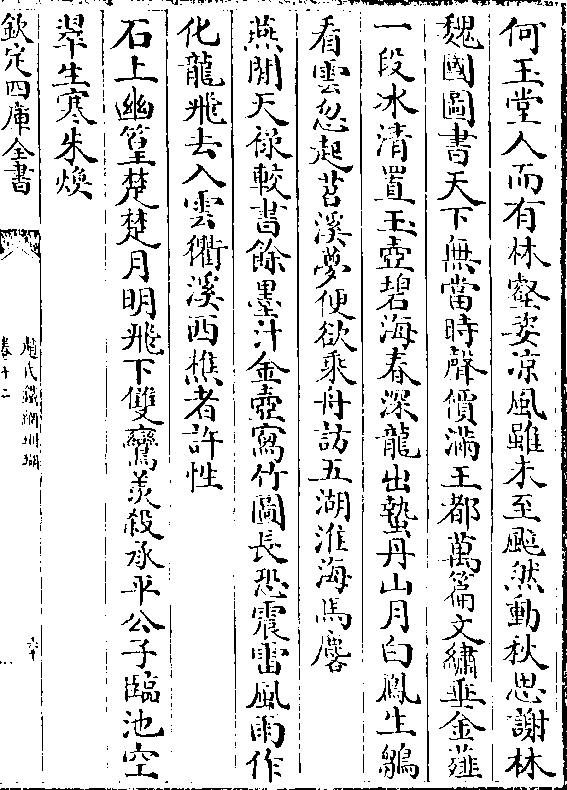 何玉堂人而有林壑姿凉風雖未至颯然動秋思謝林
魏國圖書天下無當時聲價滿王都萬篇文繡垂金薤
一段冰清置玉壺碧海春深龍出蟄丹山月白鳳生鶵
看雲忽起苕溪夢便欲乘舟訪五湖淮海馬麐
燕閒天祿較書餘墨汁金壺寫竹圖長恐震雷風雨作
化龍飛去入雲衢溪西樵者許性
石上幽篁楚楚月明飛下雙鸞羨殺承平公子臨池空
翠生寒朱煥
欽定四庫全書
趙氏鐵網珊瑚
卷十二